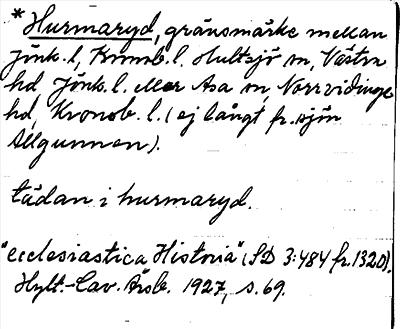 *Hurmaryd, gränsmärke mellan
Jönk. l, Kronob. l. Hultsjö sn, Västra
hd Jönk. l. eller Asa sn, Norrvidinge
hd, Kronob. l. (ej långt fr. sjön
Allgunnen).
tädan i hurmaryd.
"ecclesiastica Historia" (SD 3:484 fr. 1320).
Hylt.-Cav. Årsb. 1927, s. 69.